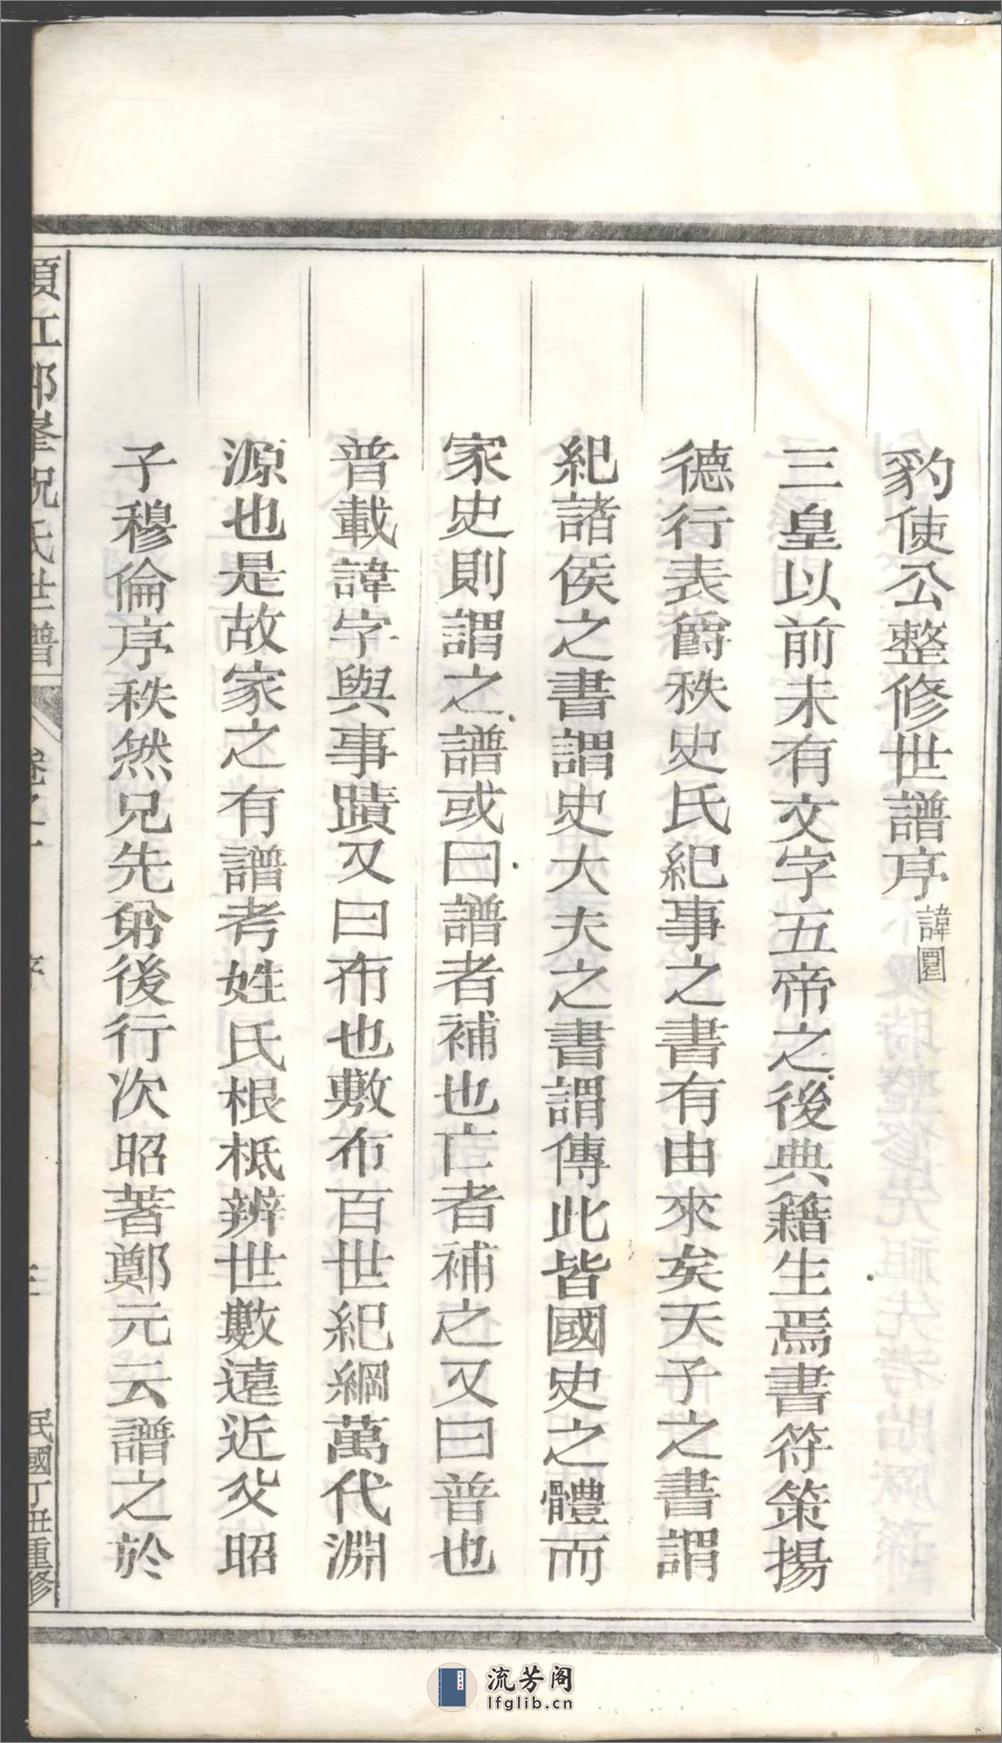 豹使公整修世譜序諱圖
三皇以前未有文字五帝之後典籍生焉書符策揚
德行表爵秩史氏紀事之書有由來矣天子之書謂
紀諸侯之書謂史大夫之書謂傳此皆國史之體而
家史則謂之譜或曰譜者補也亡者補之又曰普也
普載諱字與事蹟又曰布也敷布百世紀綱萬代淵
源也是故家之有譜考姓氏根柢辨世數遠近父昭
子穆倫序秩然兄先弟後行次昭著鄭元云譜之於
須江郎峯祝氏世譜
卷之 序
民國丁丑重修
流芳阁
lfglib.cn